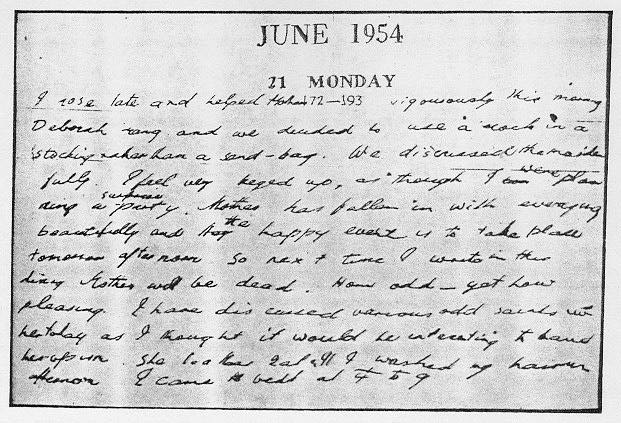 JUNE 1954
21 MONDAY
I rose late and helped Mother 172—193 vigorously this morning
Deborah rang and we decided to use a rock in a
stocking rather than a sand-bag. We discussed the murder
fully. I feel very keyed up, as though I were plan
ning a surprise party. Mother has fallen in with everything
beautifully and the happy event is to take place
tomorrow afternoon So next time I write in this
diary Mother will be dead. How odd — yet how
pleasing. I have discussed various odd saints with
her today as I thought it would be interesting to have
her opinion. I washed my hair
I came to bed at 1/4 to 9